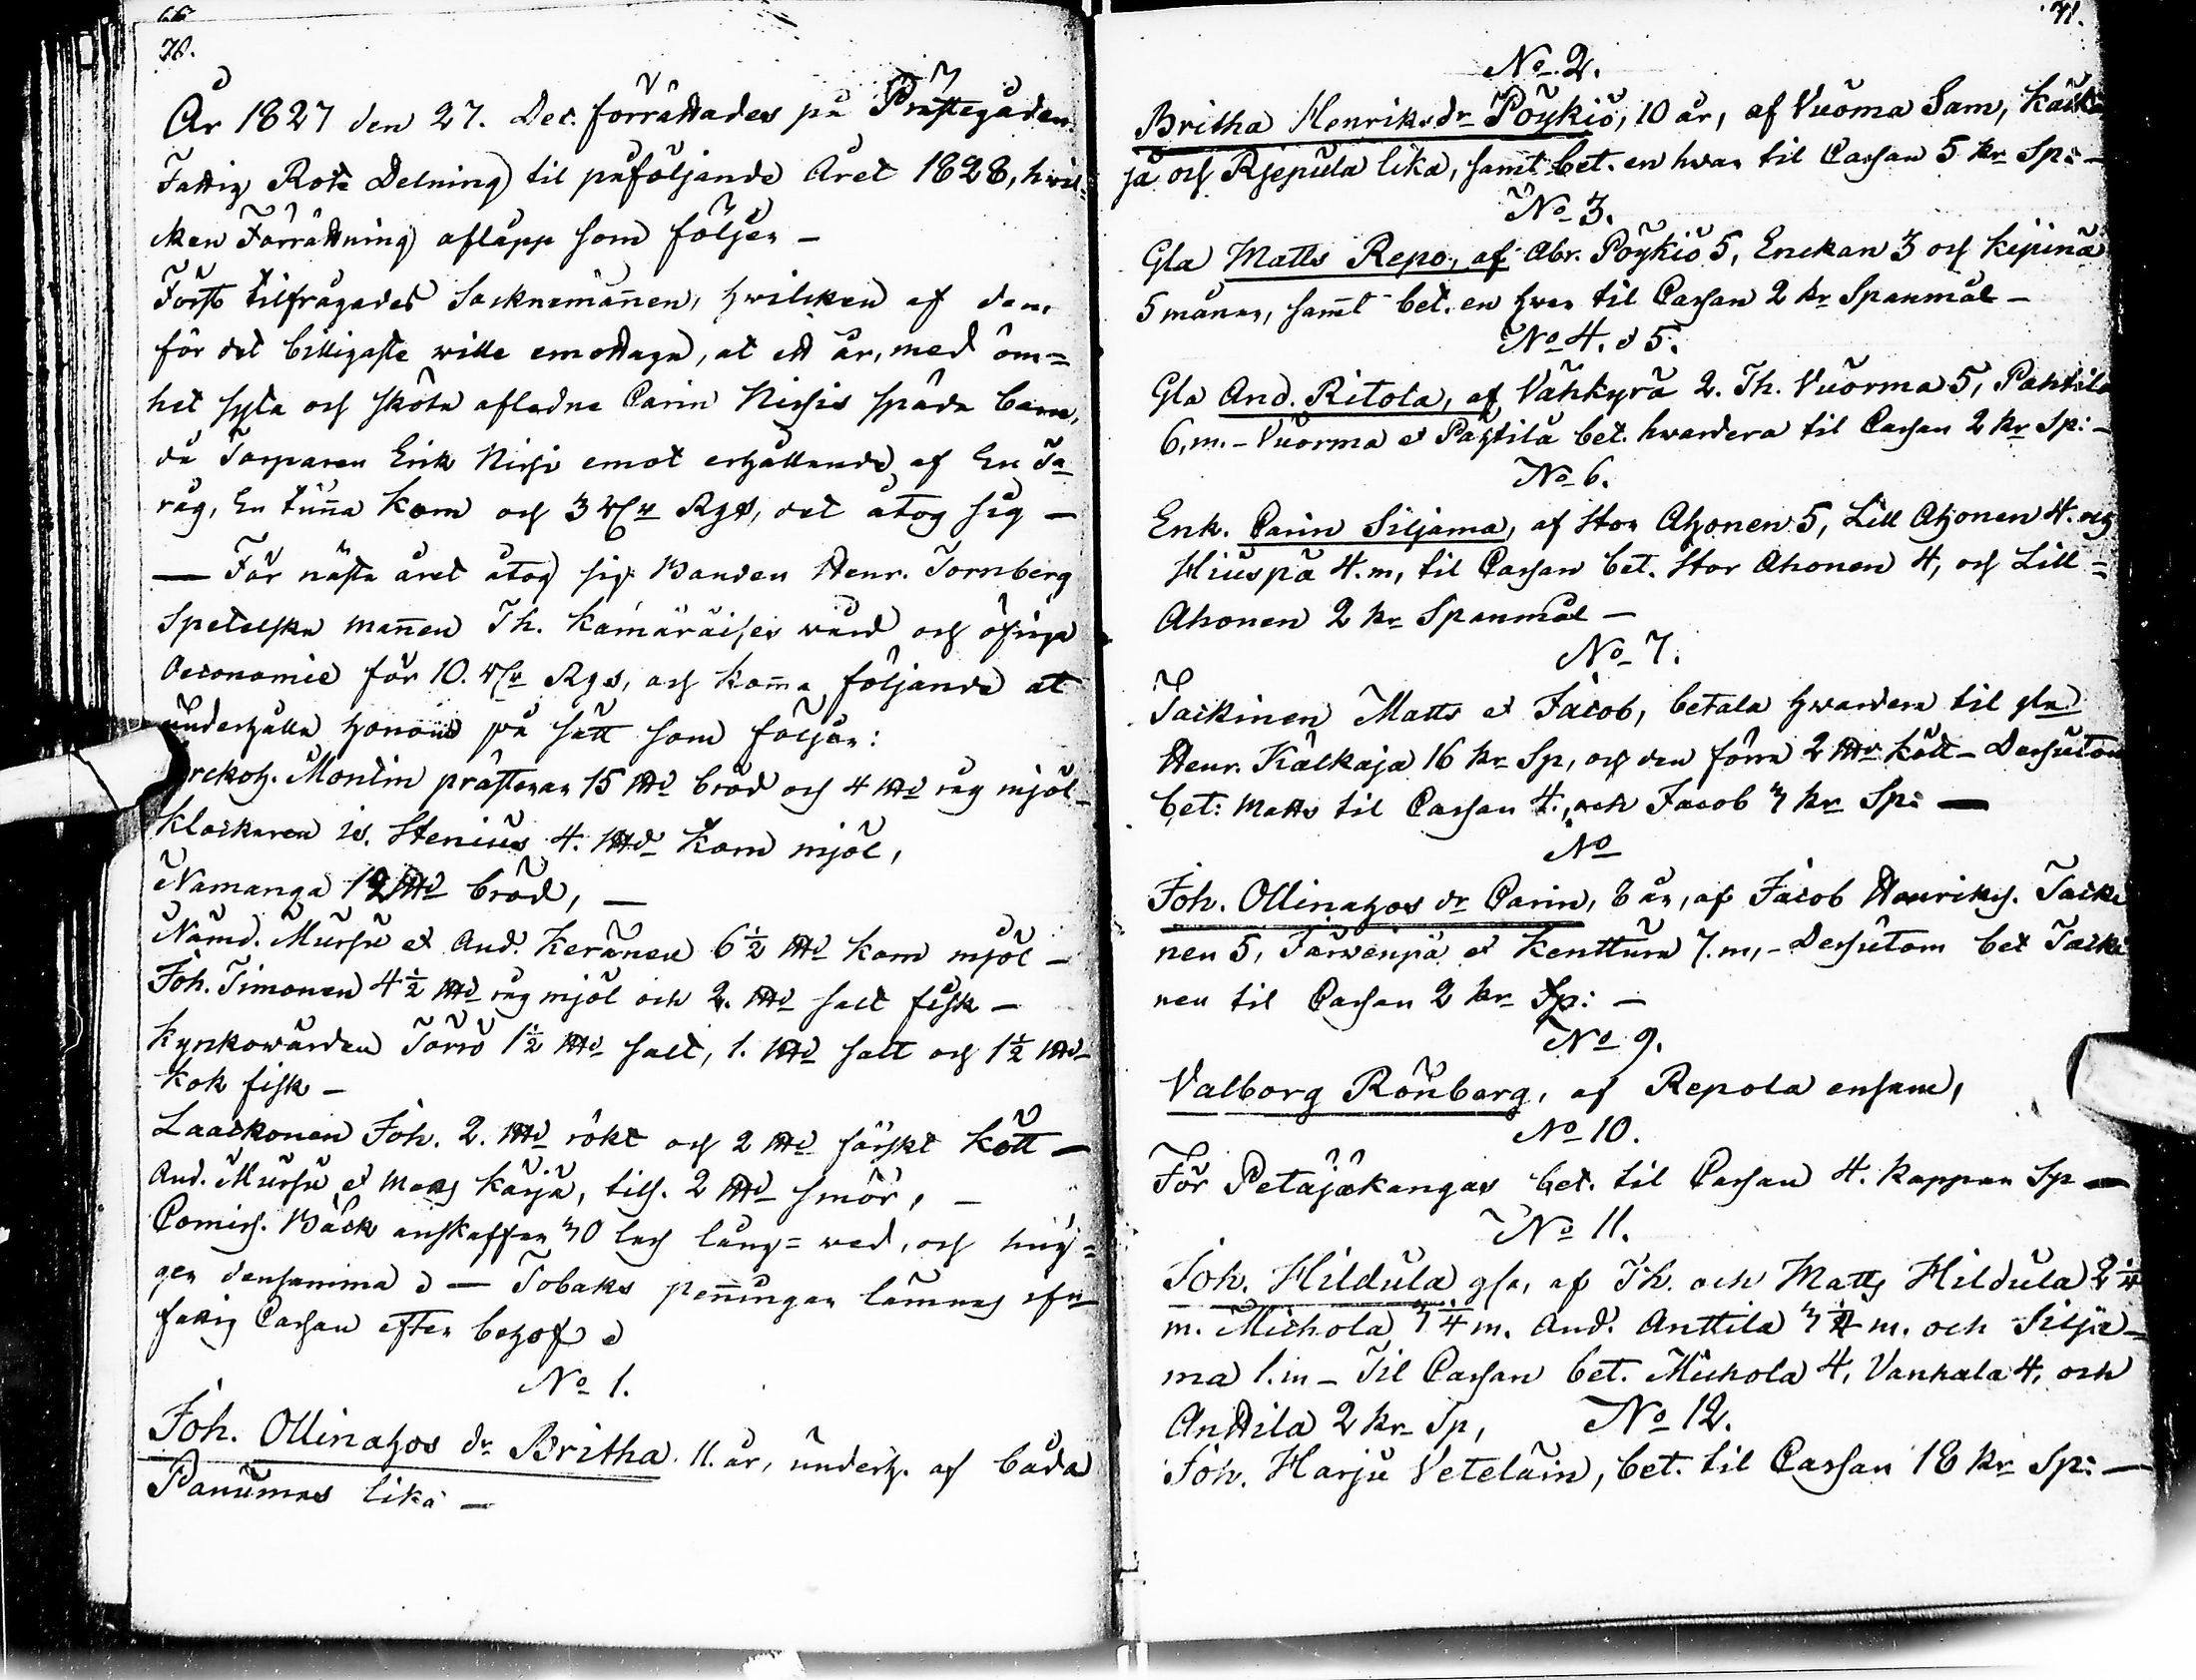 66
70.
År 1827 den 27. Dec. förrättades på Prästegården
Fattig Rote Delning til påföljande Året 1828, hvil-
cken Förrättning aflåpp som följer –
Först tilfrågades Socknemännen, hvilcken af dem
för det billigaste wille emottaga, at ett år, med öm=
het syta och sköta aflednа Carin Nissis späda barn,
då Torparen Erik Nissi emot erhållande af En Ta
råg, En tunna Korn och 3 Rgs, det åtog sig –
– För nästa året åtog sig Bonden Henr. Tornberg
Spetelska mannen Th. Kämäräises wård och öfriga
Oeconomie för 10. Rgs, och komma följande at
underhålla honom på sätt som följer:
Kyrkoh. Montin prästerar 15 l℔ bröd och 4 l℔ råg mjöl –
Klockaren is. Stenius 4. l℔ Korn mjöl,
Namanga 12 l℔ bröd, –
Nämd. Mursu et And. Keränen 6 ½ l℔ korn mjöl –
Joh. Timonen 4 ½ l℔ råg mjöl och 2. l℔ salt fisk –
Kyrkowärden Törrö 1 ½ l℔ salt, 1. l℔ salt och 1 ½ l℔
kok fisk –
Laackonen Joh. 2. l℔ rökt och 2 l℔ färskt kött –
And. Mursu et Mats Karja, tils. 2 l℔ smör, –
Comiss. Bäck anskaffar 30 lass lång= wed, och hug=
ger densamma – Tobaks penningar lämnas ifrån
fattig Cassan efter behof
No 1.
Joh. Ollinahos dr Britha 11. år, underh. af båda
Panumas lika –
71.
No 2.
Britha Henriksdr Pöykiö, 10 år, af Vuoma Sam, Kälka
ja och Rjepula lika, samt bet. en hwar til Cassan 5 kr Sp: –
No 3.
Gla Matts Repo, af Abr. Pöykiö 5, Enckan 3 och Kipinä
5 måner, samt bet. en hwar til Cassan 2 kr Spanmål –
No 4. & 5.
Gla And. Ritola, af Vähkyrä 2. Th. Vuorma 5, Pahtila
6, m. – Vuorma et Pahtila bet. hwardera til Cassan 2 kr Sp: –
No 6.
Enk. Carin Siljama, af Stor Ahonen 5, Lill Ahonen 4. och
Hiuspä 4. m, til Cassan bet. Stor Ahonen 4, och Lill=
Ahonen 2 kr Spanmål –
No 7.
Tackinen Matts et Jacob, betala hwardera til gla
Henr. Kälkäjä 16 kr Sp, och den förra 2 l℔ kött – Dessutom
bet: Matts til Cassan 4., och Jacob 3 kr Sp: –
No
Joh. Ollinahos dr Carin, 8 år, af Jacob Henrikss. Tacki
nen 5, Järwenpä et Kenttura 7. m, – Dessutom bet Tacki
nen til Cassan 2 kr Sp: –
No 9.
Valborg Rönberg, af Repola ensam,
No 10.
För Petäjäkangas bet. til Cassan 4. kappar Sp –
No 11.
Joh. Hildula gla, af Th. och Matts Hildula 2 ¼
m. Michola 3 ¼ m. And. Anttila 3 ¼ m. och Silja-
ma 1. m – Til Cassan bet. Michola 4, Vanhala 4, och
Anttila 2 kr Sp, No 12.
Joh. Harju Vetelain, bet. til Cassan 18 kr Sp: –